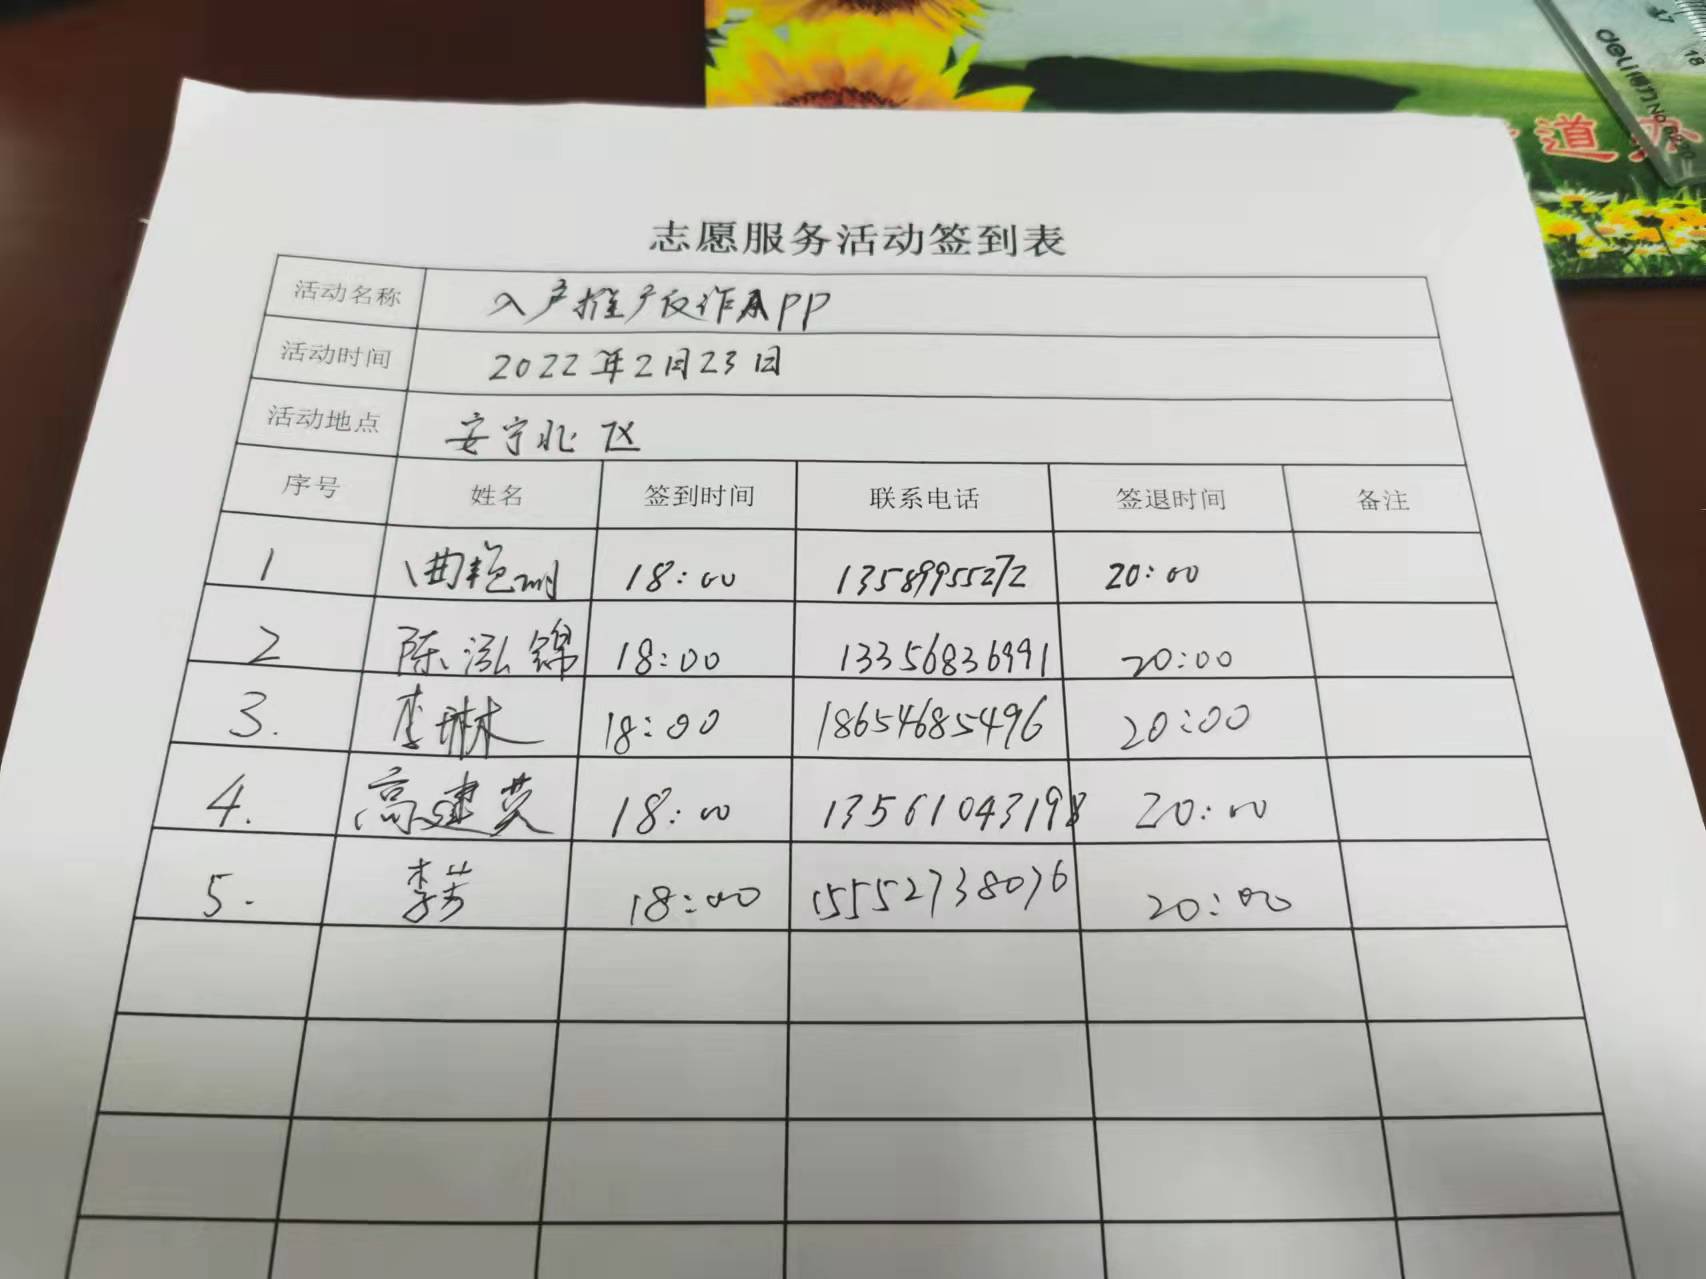 deli得力 No.6230
17
18
道办
志愿服务活动签到表
活动名称 入户推广反诈APP
活动时间 2022年2月23日
活动地点 安宁北区
序号 姓名 签到时间 联系电话 签退时间 备注
1 曲艳丽 18:00 13589955272 20:00
2 陈泓锦 18:00 13356836991 20:00
3. 李琳 18:00 18654685496 20:00
4. 高建英 18:00 13561043198 20:00
5. 李芳 18:00 15552738076 20:00